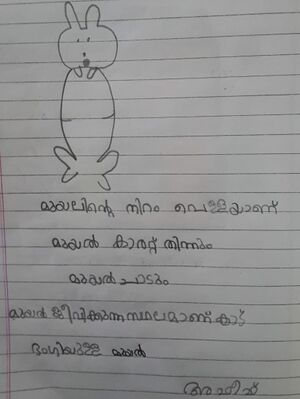 മുയലിന്റെ നിറം വെള്ളയാണ്
മുയൽ കാരറ്റ് തിന്നും
മുയൽ ചാടും
മുയൽ ജീവിക്കുന്ന സ്ഥലമാണ് കാട്
ഭംഗിയുള്ള മുയൽ